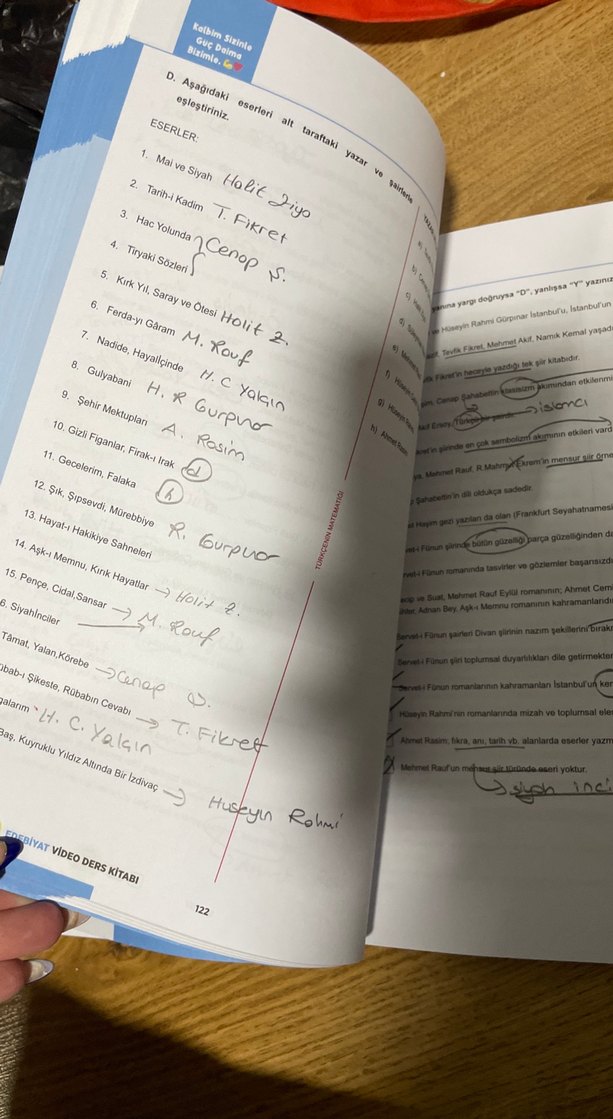 Kalbim Sizinle
Güç Daima
Bizimle.
D. Aşağıdaki eserleri alt taraftaki yazar ve şairlerle
eşleştiriniz.
ESERLER:
1. Mai ve Siyah Halit Ziya
2. Tarih-i Kadim T. Fikret
3. Hac Yolunda
Cenap Ş.
4. Tiryaki Sözleri
5. Kırk Yıl, Saray ve Ötesi Halit Z.
6. Ferda-yı Gâram M. Rauf
7. Nadide, Hayalİçinde H. C Yalçın
8. Gulyabani H. R Gurpınar
9. Şehir Mektupları A. Rasim
10. Gizli Figanlar, Firak-ı Irak d
11. Gecelerim, Falaka h
12. Şık, Şıpsevdi, Mürebbiye R. Gurpınar
13. Hayat-ı Hakikiye Sahneleri
14. Aşk-ı Memnu, Kırık Hayatlar → Halit Z.
15. Pençe, Cidal,Sansar → M. Rauf
6. Siyahİnciler
Tâmat, Yalan,Körebe → Cenap Ş.
übab-ı Şikeste, Rübabın Cevabı → T. Fikret
galarım H. C. Yalçın
Baş. Kuyruklu Yıldız Altında Bir İzdivaç → Huseyin Rahmi
EDEBİYAT VİDEO DERS KİTABI
122
TÜRKÇENİN MATEMATİĞİ
YAZAR
a)
b)
c)
d)
e)
f) Hüseyin
g) Hüseyin
h) Ahmet Rasim
yanına yargı doğruysa "D", yanlışsa "Y" yazınız
ve Hüseyin Rahmi Gürpınar İstanbul'u, İstanbul'un
Tevfik Fikret, Mehmet Akif, Namık Kemal yaşadı
Fikret'in heceyle yazdığı tek şiir kitabıdır.
Cenap Şahabettin klasisizm akımından etkilenmi
Akif Ersoy, → islamcı
şiirinde en çok sembolizm akımının etkileri vard
Mehmet Rauf, R.Mahmut Ekrem'in mensur şiir örne
Şahabettin'in dili oldukça sadedir.
Haşim gezi yazıları da olan (Frankfurt Seyahatnamesi
vet-i Fünun şiirinde bütün güzelliği parça güzelliğinden da
rvet-i Fünun romanında tasvirler ve gözlemler başarısızdı
ve Suat, Mehmet Rauf Eylül romanının; Ahmet Cem
Adnan Bey, Aşk-ı Memnu romanının kahramanlarıdı
Servet-i Fünun şairleri Divan şiirinin nazım şekillerini bırak
Servet-i Fünun şiiri toplumsal duyarlılıkları dile getirmekter
Servet-i Fünun romanlarının kahramanları İstanbul'un ken
Hüseyin Rahmi'nin romanlarında mizah ve toplumsal ele
Ahmet Rasim; fıkra, anı, tarih vb. alanlarda eserler yazm
Mehmet Rauf'un mensur şiir türünde eseri yoktur.
siyah inci